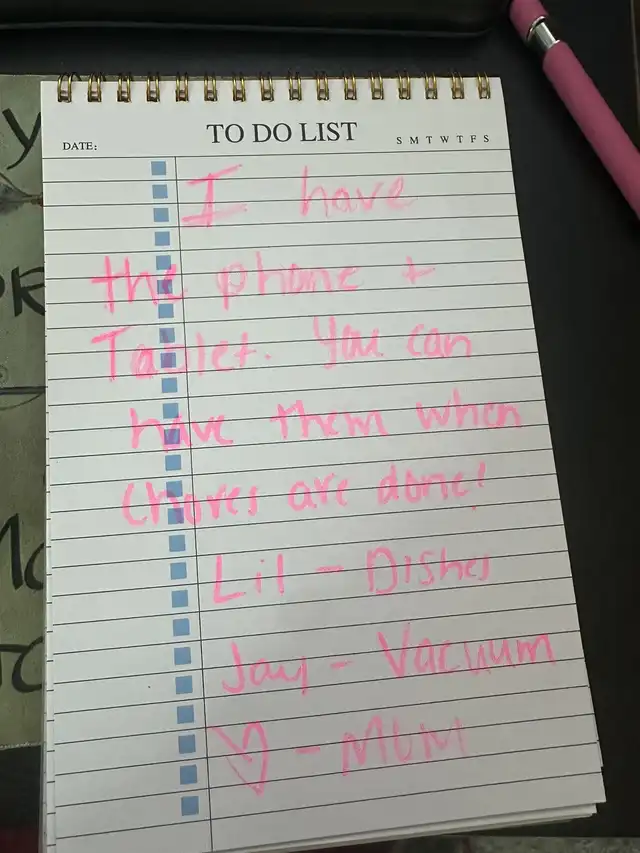 TO DO LIST
DATE:
S M T W T F S
I have
the phone +
Tablet. You can
have them when
chores are done!
Lil - Dishes
Jay - Vacuum
♡ - MUM